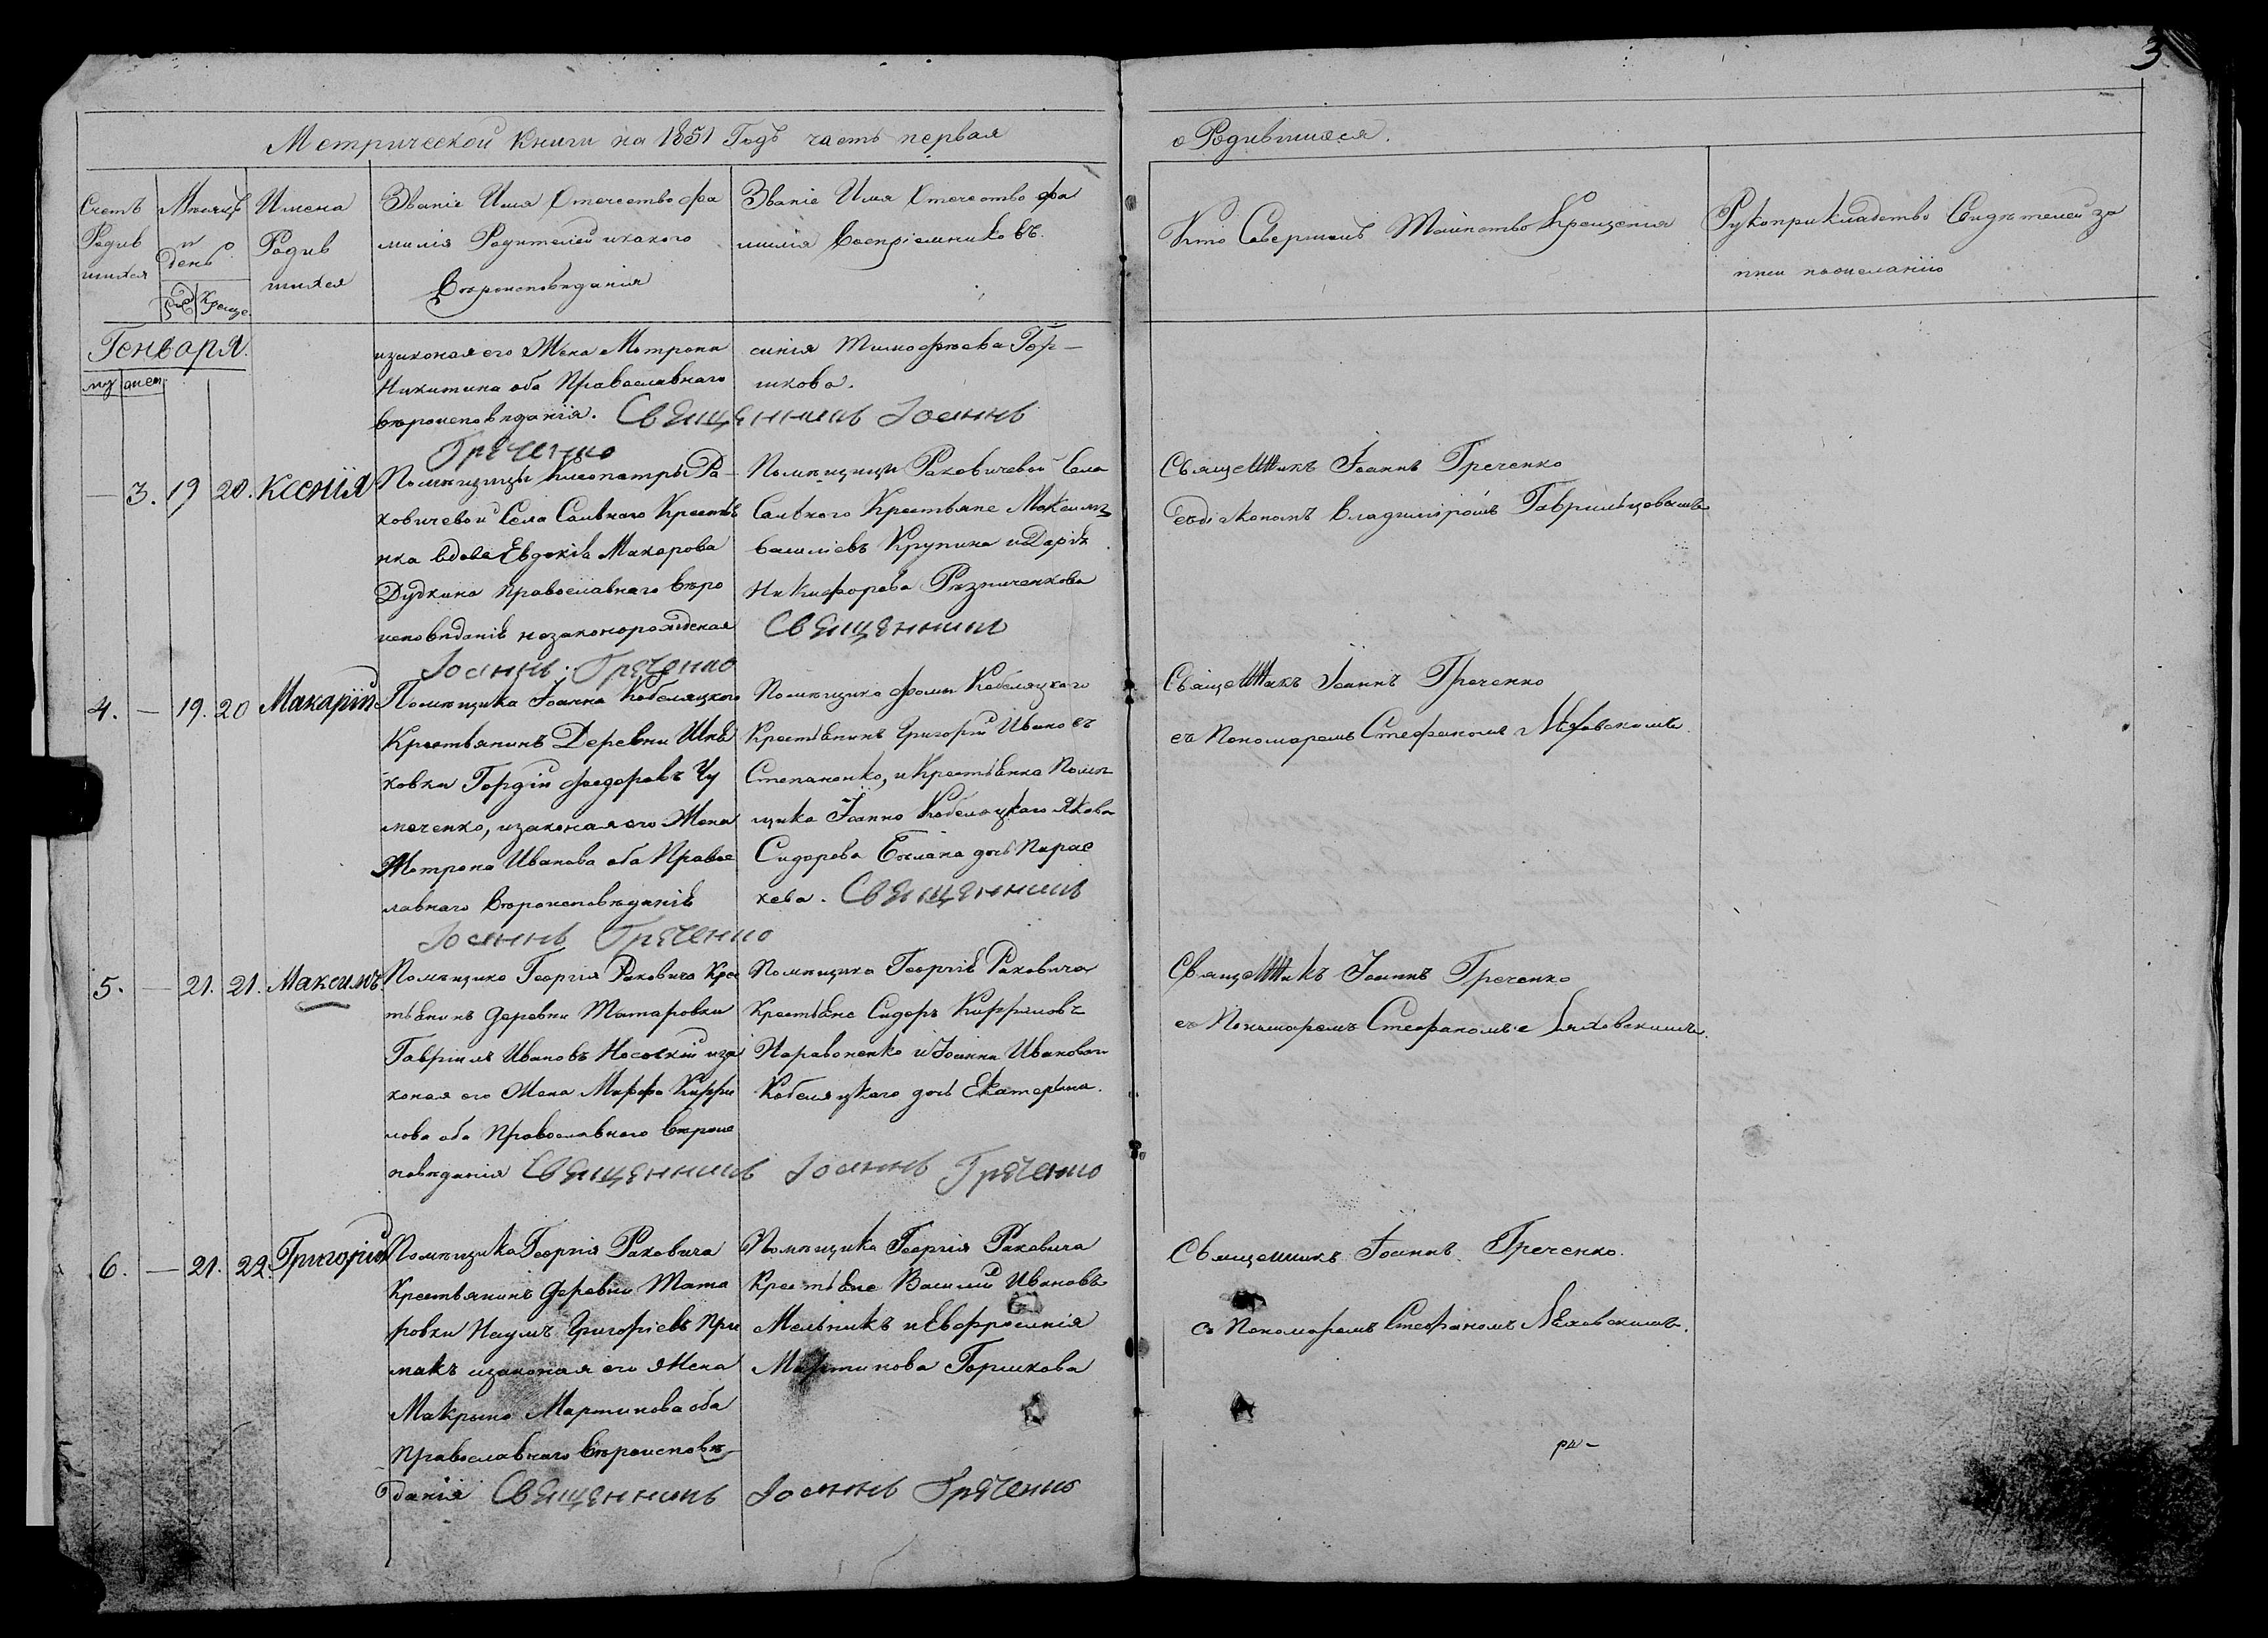 3
Метрической Книги на 1851 Годъ часть первая
о Родившихся.
Счетъ Родив шихся
Мѣсяцъ и день
рож Креще.
Имена Родив шихся
Званіе Имя Отечество фа
милія Родителей и какого
Вѣроисповѣданія
Званіе Имя Отечество фа
милія Воспріемниковъ.
Кто Совершалъ Таинство Крещенія
Рукоприкладство Свидѣтелей за
писи по желанію
Генваря.
муж жен
изаконая его Жена Мотрона
Никитина оба Православнаго
вѣроисповѣданія. Священникъ Іоаннъ
Греченко
синія Тимофѣева Гор-
шкова.
3. 19 20. Ксенія
Помѣщицы Клеопатры Ра-
ковичевой Села Сальнаго Крестья
нка вдова Евдокія Макарова
Дудкина православнаго вѣро
исповѣданія незаконорожденая
Помѣщици Раковичевой Села
Сальнаго Крестьяне Максимъ
Василіевъ Крупина и Дарія
Никифорова Рѣзниченкова
Священникъ
Іоаннъ Греченко
Священникъ Іоаннъ Греченко
съ діякономъ Владиміромъ Гаврильцовымъ
4. — 19. 20 Макарій
Помѣщика Іоанна Кобеляцкого
Крестьянинъ Деревни
ковки Гордій Федоровъ Чу
мченко, изаконая его Жена
Мотрона Иванова оба Правос
лавнаго Вѣроисповѣданія
Помѣщика Фомы Кобеляцкаго
Крестьянинъ Григорій Ивановъ
Степаненко, и Крестьянка Помѣ
щика Іоанна Кобеляцкаго Якова
Сидорова дочь Парас
кева. Священникъ
Іоаннъ Греченко
Священникъ Іоаннъ Греченко
съ Пономаремъ Стефаномъ Ляховскимъ.
5. — 21. 21. Максимъ
Помѣщика Георгія Раковича Крес
тьянинъ деревни Татаровки
Гавріилъ Ивановъ Носовскій иза
коная его Жена Марфа Кирри
лова оба Православнаго вѣроис
повѣданія Священникъ Іоаннъ Греченко
Помѣщика Георгія Раковича
Крестьяне Сидоръ Кирриловъ
Паравоненко и Іоанна Иванова
Кобеляцкаго дочь Екатерина.
Священникъ Іоаннъ Греченко
съ Пономаремъ Стефаномъ Ляховскимъ.
6. — 21. 22. Григорій
Помѣщика Георгія Раковича
Крестьянинъ деревни Тата
ровки Наумъ Григоріевъ При
макъ изаконая его Жена
Макрына Мартинова оба
Православнаго Вѣроисповѣ-
данія Священникъ Іоаннъ Греченко
Помѣщика Георгія Раковича
Крестьяне Василій Ивановъ
Мельникъ и Евфросинія
Мартинова Горшкова
Священникъ Іоаннъ Греченко.
съ Пономаремъ Стефаномъ Ляховскимъ.